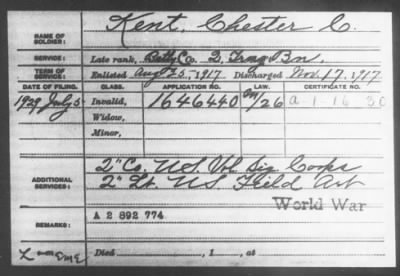 NAME OF SOLDIER: Kent, Chester C.
SERVICE: Late rank, Batty Co. D, Trng Bn,
TERM OF SERVICE: Enlisted Aug 25, 1917. Discharged Nov. 17, 1917
DATE OF FILING. CLASS. APPLICATION NO. LAW. CERTIFICATE NO.
1929 July 5 Invalid, 1646440 26 a-1-16-30
Widow,
Minor,
ADDITIONAL SERVICES: 2" Co. U.S. Vol. Sig Corps
2" Lt. U.S. Field Art
World War
REMARKS: A 2 892 774
Died , 1 , at